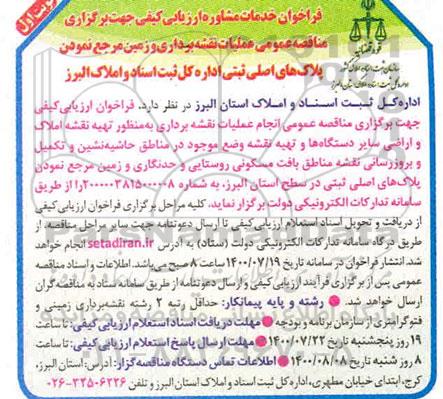 نوبت اول
فراخوان خدمات مشاوره ارزیابی کیفی جهت برگزاری
مناقصه عمومی عملیات نقشه برداری و زمین مرجع نمودن
پلاک‌های اصلی ثبتی اداره کل ثبت اسناد و املاک البرز
قوه قضائیه
سازمان ثبت اسناد و املاک کشور
اداره کل ثبت اسناد و املاک استان البرز
اداره کل ثبت اسناد و املاک استان البرز در نظر دارد، فراخوان ارزیابی کیفی
جهت برگزاری مناقصه عمومی انجام عملیات نقشه برداری به‌منظور تهیه نقشه املاک
و اراضی سایر دستگاه‌ها و تهیه نقشه وضع موجود در مناطق حاشیه‌نشین و تکمیل
و بروزرسانی نقشه مناطق بافت مسکونی روستایی و حدنگاری و زمین مرجع نمودن
پلاک‌های اصلی ثبتی در سطح استان البرز، به شماره ۲۰۰۰۰۰۳۸۱۵۰۰۰۰۰۸ را از طریق
سامانه تدارکات الکترونیکی دولت برگزار نماید. کلیه مراحل برگزاری فراخوان ارزیابی کیفی
از دریافت و تحویل اسناد استعلام ارزیابی کیفی تا ارسال دعوتنامه جهت سایر مراحل مناقصه، از
طریق درگاه سامانه تدارکات الکترونیکی دولت (ستاد) به آدرس setadiran.ir انجام خواهد
شد. انتشار فراخوان در سامانه تاریخ ۱۴۰۰/۰۷/۱۹ ساعت ۸ صبح می باشد. اطلاعات و اسناد مناقصه
عمومی پس از برگزاری فرآیند ارزیابی کیفی و ارسال دعوتنامه از طریق سامانه ستاد به مناقصه گران
ارسال خواهد شد. ● رشته و پایه پیمانکار: حداقل رتبه ۲ رشته نقشه‌برداری زمینی و
فتوگرامتری از سازمان برنامه و بودجه ● مهلت دریافت اسناد استعلام ارزیابی کیفی: تا ساعت
۱۹ روز پنجشنبه تاریخ ۱۴۰۰/۰۷/۲۲ ● مهلت ارسال پاسخ استعلام ارزیابی کیفی: تا ساعت
۸ روز شنبه تاریخ ۱۴۰۰/۰۸/۰۸ ● اطلاعات تماس دستگاه مناقصه‌گزار: آدرس: استان البرز،
کرج، ابتدای خیابان مطهری، اداره کل ثبت اسناد و املاک استان البرز و تلفن ۳۳۵۰۶۲۲۶-۰۲۶